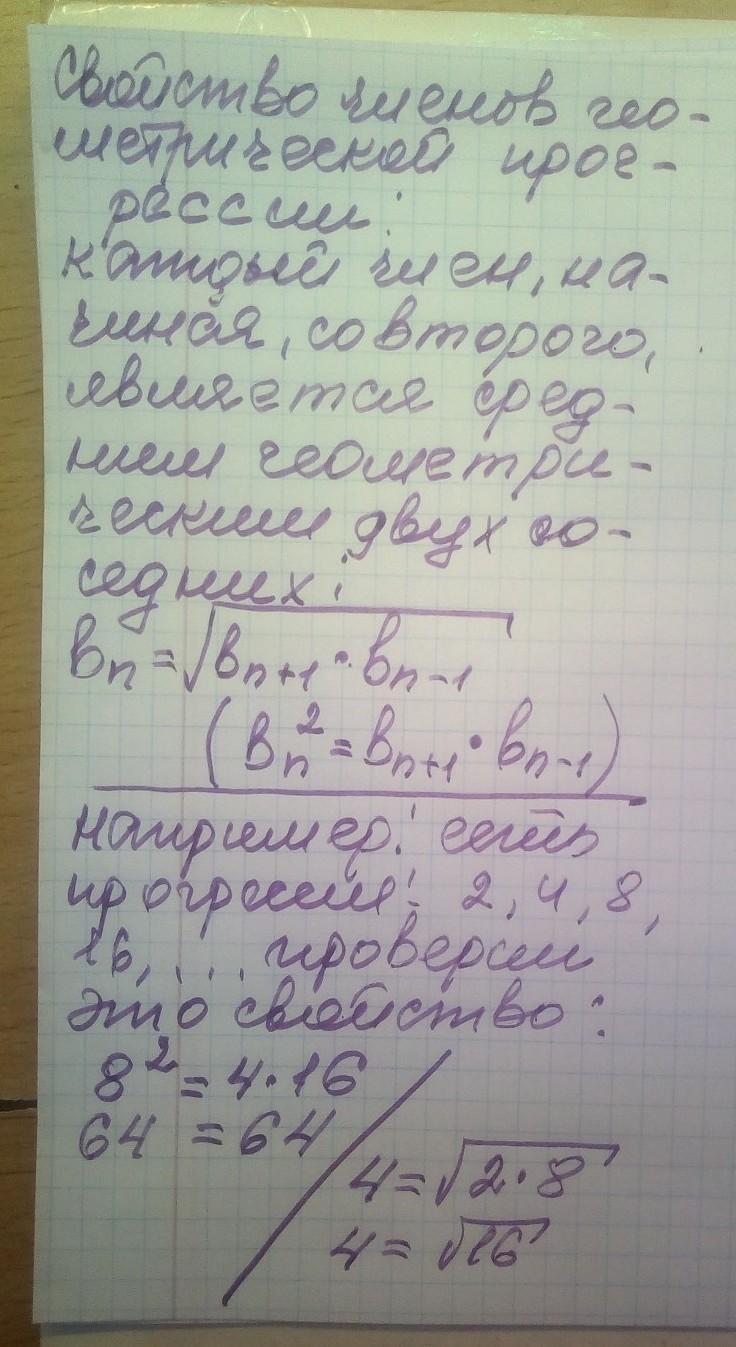 Свойство членов гео-
метрической прог-
рессии:
каждый член, на-
чиная, со второго,
является сред-
ним геометри-
ческим двух со-
седних:
вn = √вn+1 · вn-1
(вn² = вn+1 · вn-1)
например: есть
прогрессия: 2, 4, 8,
16, ... проверим
это свойство:
8² = 4·16
64 = 64
4 = √2·8
4 = √16